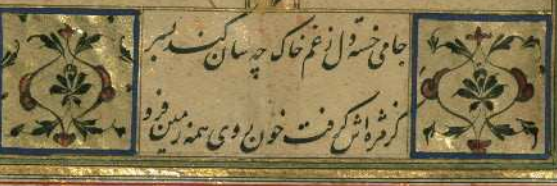 جامی خسته دل ز غم خاک چه سان کند بسر
کز مژه اش گرفت خون روی همه زمین فرو